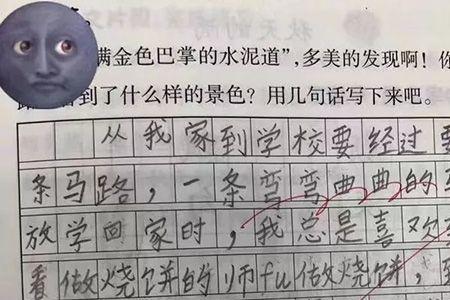 满金色巴掌的水泥道”,多美的发现啊!你
看到了什么样的景色?用几句话写下来吧。
从我家到学校要经过
条马路,一条弯弯曲曲的
放学回家时,我总是喜欢
看做烧饼的师fu做烧饼,